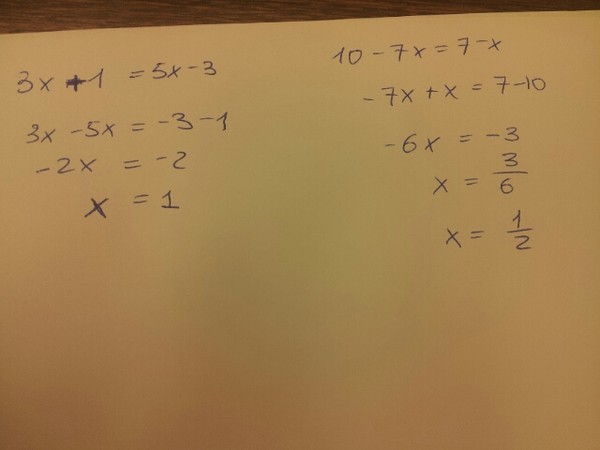 3x + 1 = 5x - 3
3x - 5x = -3 - 1
-2x = -2
x = 1
10 - 7x = 7 - x
-7x + x = 7 - 10
-6x = -3
x = 3/6
x = 1/2